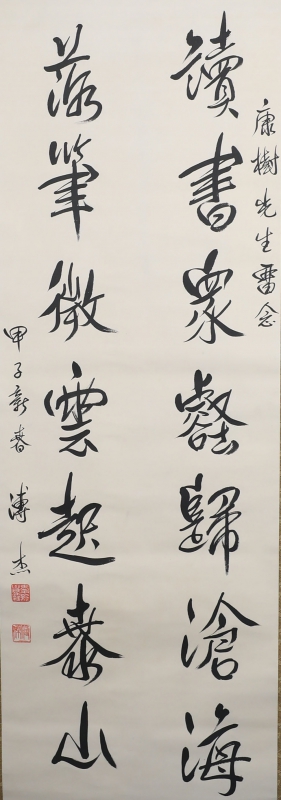 康樹先生留念
讀書眾壑歸滄海
落筆微雲起泰山
甲子新春 溥杰